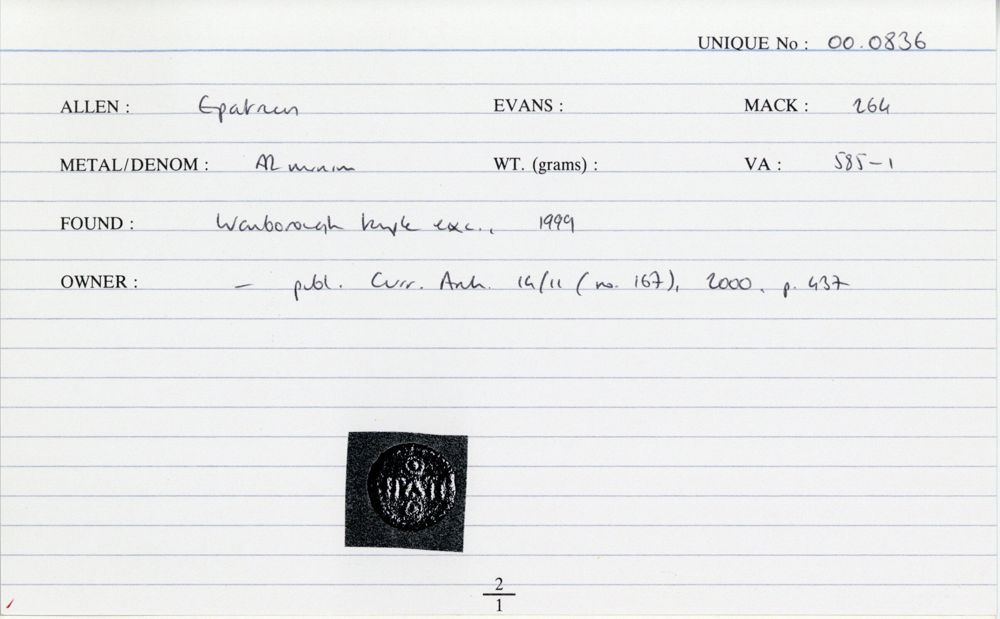 UNIQUE No : 00.0836
ALLEN : Epaticcus EVANS : MACK : 264
METAL/DENOM : AR minim WT. (grams) : VA : 585-1
FOUND : Wanborough temple exc., 1999
OWNER : — publ. Curr. Arch. 14/11 (no. 167), 2000, p. 437
2
1